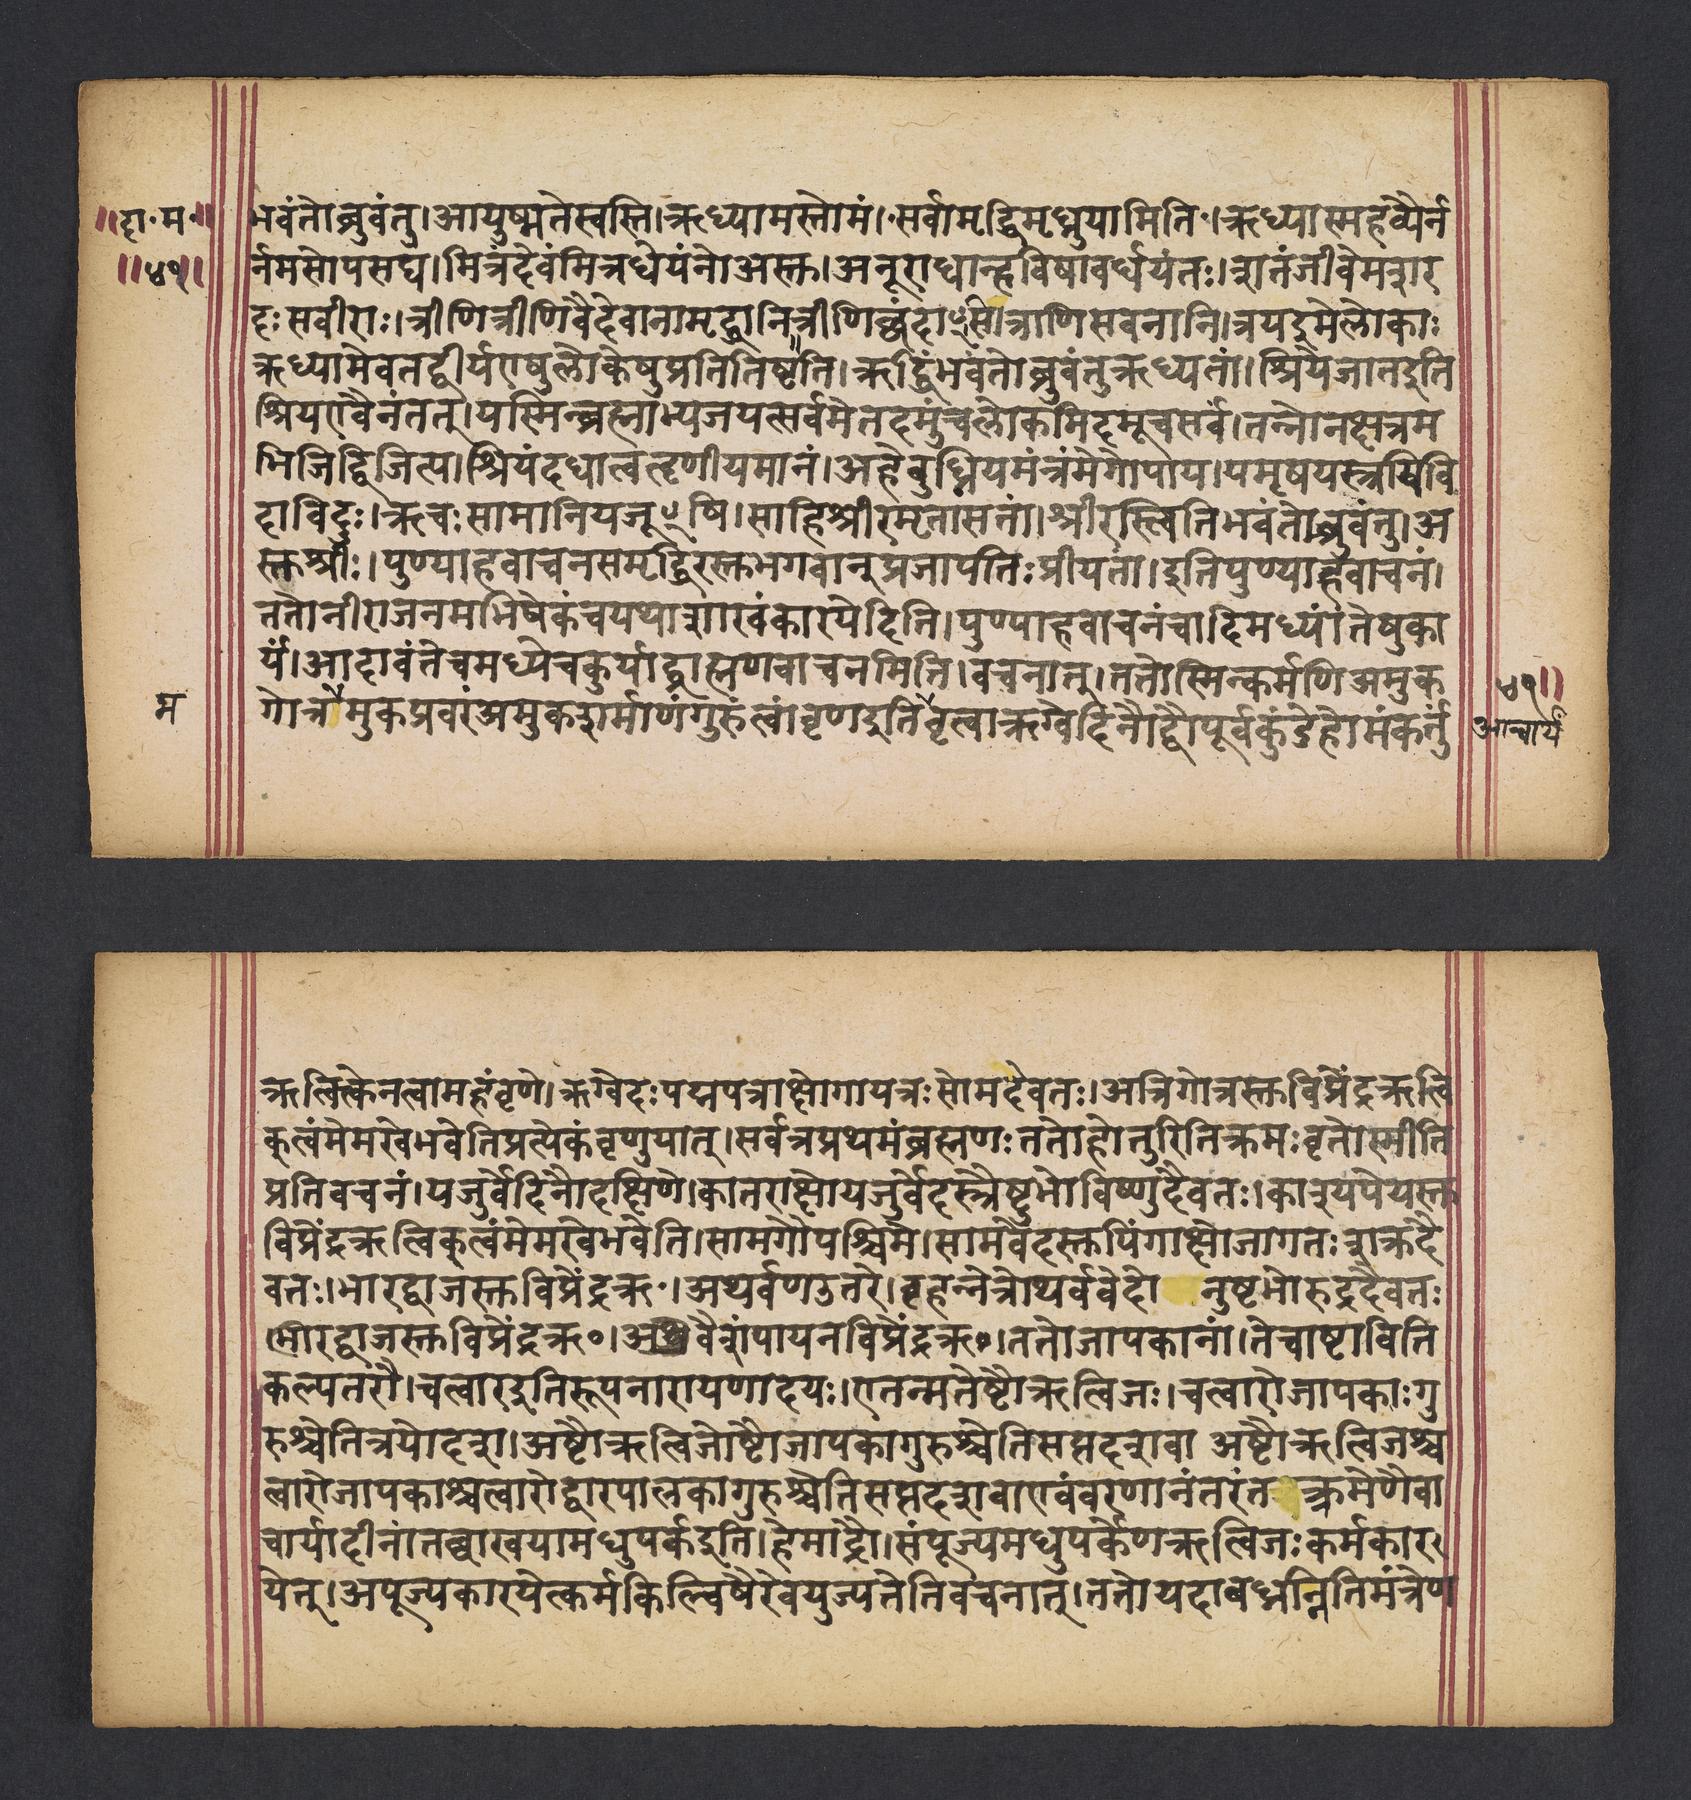 ॥दा॰म॰॥
॥४१॥
भवंतोब्रुवंतु।आयुष्मतेस्वस्ति।ऋध्यामस्तोमं।॰सर्वामृद्धिमृध्नुयामिति॰।ऋध्यास्महव्यैर्न
र्नमसोपसद्य।मित्रंदेवंमित्रधेयंनोअस्तु।अनूराधान्हविषावर्धयंतः।शतंजीवेमशर
दःसवीराः।त्रीणित्रीणिवैदेवानामृद्धानित्रीणिछंदाꣳसित्राणिसवनानि।त्रयइमेलोकाः
ऋध्यामेवतद्वीर्यएषुलोकेषुप्रतितिष्ठति।ऋद्धिंभवंतोब्रुवंतुऋध्यतां।श्रियेजातइति
श्रियएवैनंतत्।यस्मिन्ब्रह्माभ्यजयत्सर्वमेतदमुंचलोकमिदमूचसर्वं।तन्नोनक्षत्रम
भिजिद्विजित्य।श्रियंदधात्वत्दृणीयमानं।अहेबुध्नियमंत्रंमेगोपाय।यमृषयस्त्रयिवि
दाविदुः।ऋचःसामानियजूꣳषि।साहिश्रीरमृतासतां।श्रीरस्त्वितिभवंतोब्रुवंतु।अ
स्तुश्रीः।पुण्याहवाचनसमृद्धिरस्तुभगवान्प्रजापतिःप्रीयतां।इतिपुण्याहवाचनं।
ततोनीराजनमभिषेकंचयथाशाखंकारयेदिति।पुण्याहवाचनंचादिमध्यांतेषुका
र्यं।आदावंतेचमध्येचकुर्याद्ब्राह्मणवाचनमिति।वचनात्।ततोस्मिन्कर्मणिअमुक
म
गोत्रमुकप्रवरंअमुकशर्माणंगुरुंत्वांवृणइतिवृत्वाऋग्वेदिनौद्वौपूर्वकुंडेहोमंकर्तुं
५१॥
आचार्यं
ऋत्विक्त्वेनत्वामहंवृणे।ऋग्वेदःपद्मपत्राक्षोगायत्रःसोमदैवतः।अत्रिगोत्रस्तुविप्रेंद्रऋत्वि
क्त्वंमेमखेभवेतिप्रत्येकंवृणुयात्।सर्वत्रप्रथमंब्रह्मणःततोहोतुरितिक्रमःवृतोस्मीति
प्रतिवचनं।यजुर्वेदिनौदक्षिणे।कातराक्षोयजुर्वेदस्त्रैष्टुभोविष्णुदैवतः।काश्यपेयस्तु
विप्रेंद्रऋत्विक्त्वंमेमखेभवेति।सामगौपश्चिमे।सामवेदस्तुपिंगाक्षोजागतःशक्रदै
वतः।भारद्वाजस्तुविप्रेंद्रऋ॰।अथर्वणउत्तरे।बृहन्नेत्रोथर्ववेदो नुष्टुभोरुद्रदैवतः
भारद्वाजस्तुविप्रेंद्रऋ॰।वैशंपायनविप्रेंद्रऋ॰।ततोजापकानां।तेचाष्टाविति
कल्पतरौ।चत्वारइतिरूपनारायणादयः।एतन्मतेष्टौऋत्विजः।चत्वारोजापकाःगु
रुश्चेतित्रयोदश।अष्टौऋत्विजोष्टौजापकागुरुश्चेतिसप्तदशवा अष्टौऋत्विजश्च
त्वारोजापकाश्चत्वारोद्वारपालकागुरुश्चेतिसप्तदशवाएवंवरणानंतरंत क्रमेणैवा
चार्यादीनांतच्छाखयामधुपर्कइति।हेमाद्रौ।संपूज्यमधुपर्केणऋत्विजःकर्मकार
येत्।अपूज्यकारयेत्कर्मकिल्बिषैरेवयुज्यतेतिवचनात्।ततोयदाबध्नन्नितिमंत्रेण